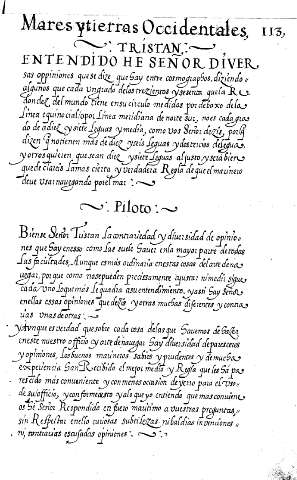 Mares y tierras Occidentales, 113,
TRISTAN.
ENTENDIDO HE SEÑOR DIVER
sas oppiniones que se dize que hay entre cosmographos, diziendo
algunos que cada un grado de los trezientos y sesenta que la Re
dondez del mundo tiene en su circulo medidos por
línea equinocial o por línea meridiana de norte sur,
de a diez y siete leguas y media, como vos Señor dezis,
dizen que no tienen más de diez y seis leguas y
y otros quieren que sean diez y siete leguas al justo y
que declareis la más cierta y verdadera Regla de que el marinero
deve usar navegando por el mar.
Piloto.
Bien se Señor Tristan la contrariedad y diversidad de opinio
nes que hay en esso como las suele haver en la mayor parte de todas
las facultades, Aunque es más ordinaria en estas cosas del arte de nave
gar, porque como no se pueden precissamente ajustar ni medir sigue
cada uno lo que más le guadra a su entendimiento, y assi hay Señor
en ellas essas opiniones que dezis y otras muchas diferentes y contra
rias unas de otras.
y aunque es verdad que sobre cada cosa de las que havemos de hazer
en este nuestro officio y arte de navegar hay diversidad de paresceres
y opiniones, los buenos marineros sabios y prudentes y de mucha
experiencia han Recibido el mejor medio y Regla que les ha pa
rescido más conveniente y con menos ocasion de yerro para el
de su officio, y conforme a esto y a lo que yo entiendo que mas convie
ne he Señor Respondido en fuero maritimo a vuestras preguntas,
sin Respetar en ello curiosas subtilezas ni baldias invinciones
ni, contrarias escusadas opiniones.